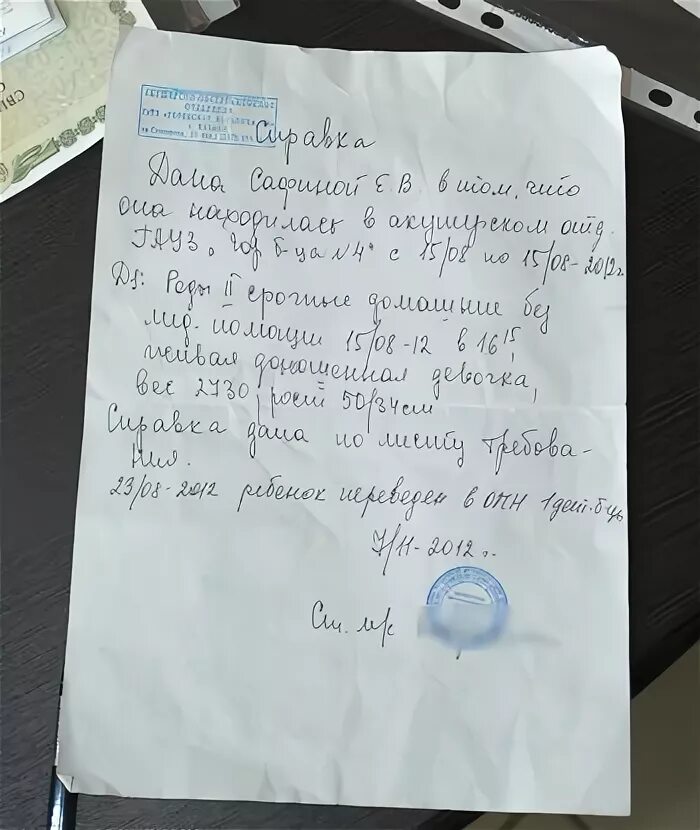 Справка
Дана Сафиной Е.В. в том, что
она находилась в акушерском отд.
ГАУЗ „Гор б-ца N4" с 15/08 по 15/08-2012г
Ds: Роды II срочные домашние без
мед. помощи 15/08-12 в 16 15,
живая доношенная девочка,
вес 2730, рост 50/34см
Справка дана по месту требова-
ния.
23/08-2012 ребенок переведен в ОПН 1 дет. б-цы
7/11-2012г.
Ст. м/с